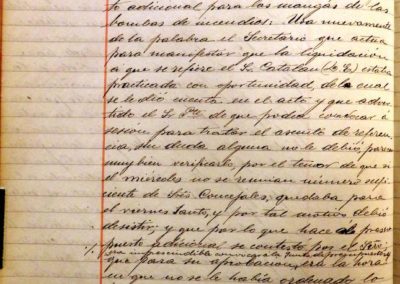 to adicional para las mangas de las
bombas de incendios: Usa nuevamente
de la palabra el Secretario que actua
para manifestar que la liquidación
a que se refiere el Sr. Catalan estaba
practicada con oportunidad, de la cual
se le dió cuenta en el acta y que adver
tido el Sr. Pte. de que podia convocar á
sesión para tratar el asunto de referen
cia, sin duda alguna no le debió parecer
muy bien verificarlo, por el temor de que si
el miércoles no se reunian número sufi
ciente de Sres Concejales, quedaba para
el viernes Santo, y por tal motivo debió
desistir; y que por lo que hace al presu
puesto adicional se contestó por el
era imprescindible convocar la Junta de
que para su aprobacion, era la hora
en que no se habia ordenado lo